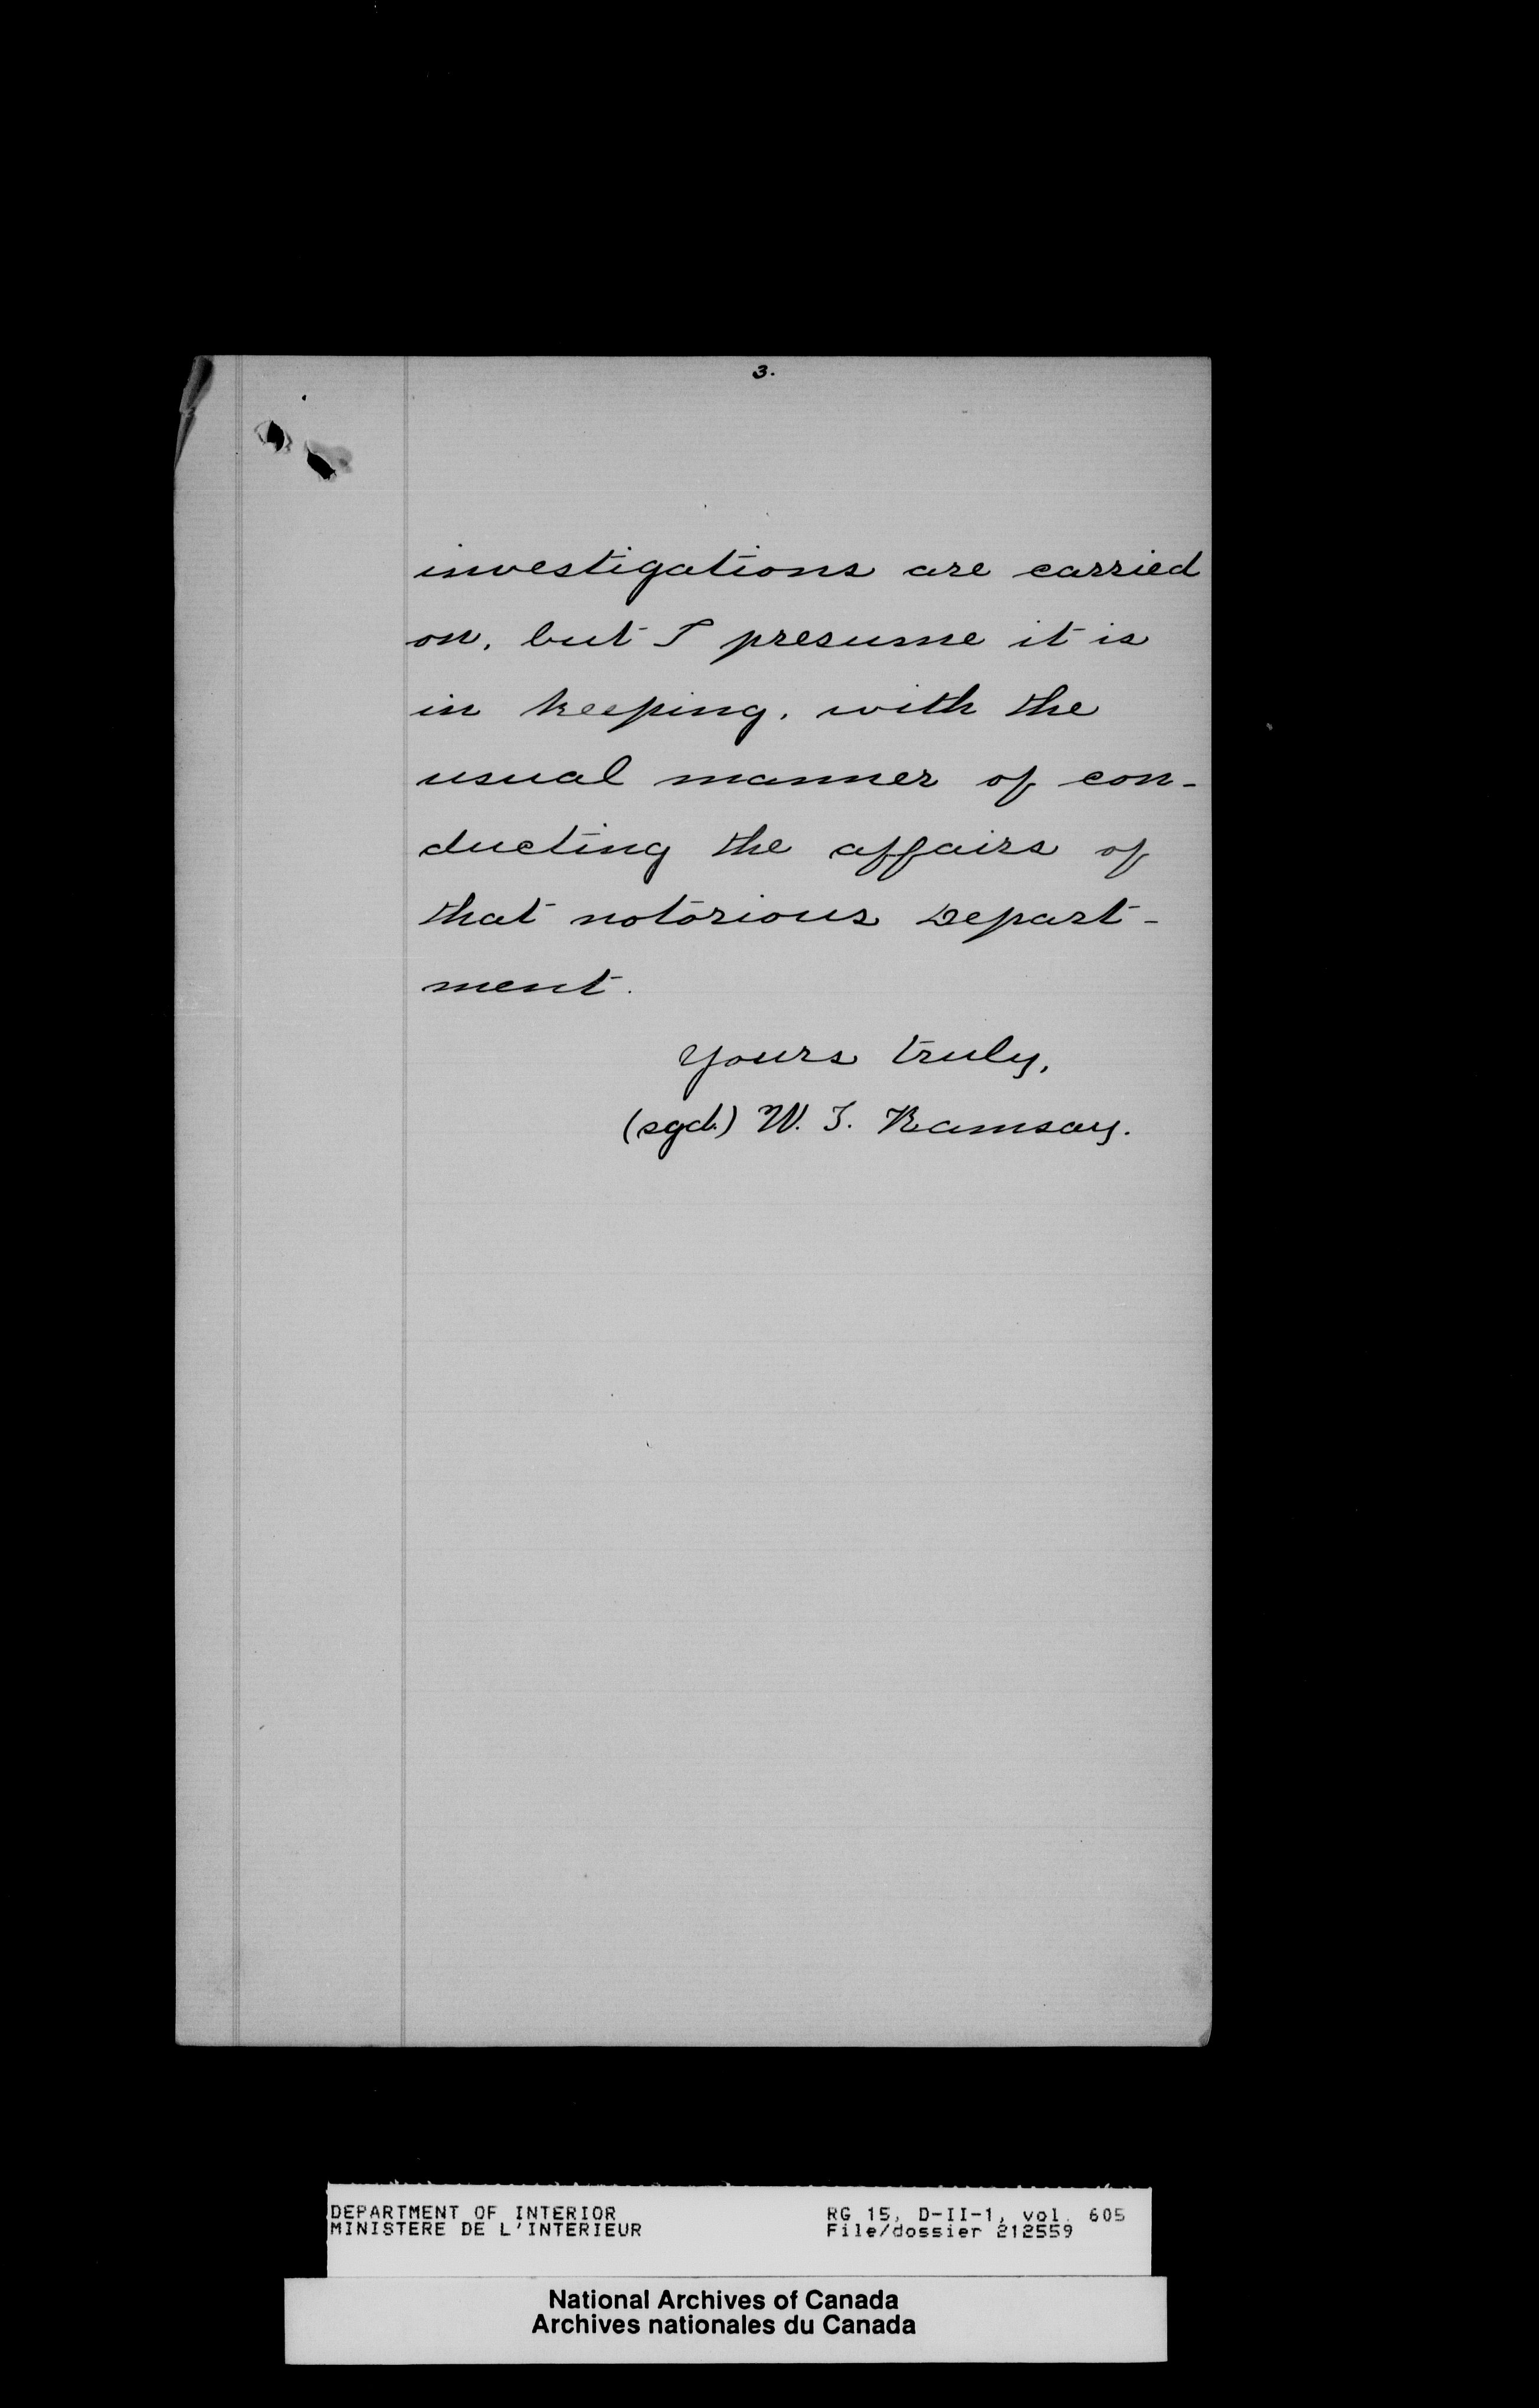 3.
investigations are carried
on, but I presume it is
in keeping, with the
usual manner of con-
ducting the affairs of
that notorious Depart-
ment.
Yours truly,
(sgd.) W. T. Ramsay.
DEPARTMENT OF INTERIOR RG 15, D-II-1, vol. 605
MINISTERE DE L'INTERIEUR File/dossier 212559
National Archives of Canada
Archives nationales du Canada